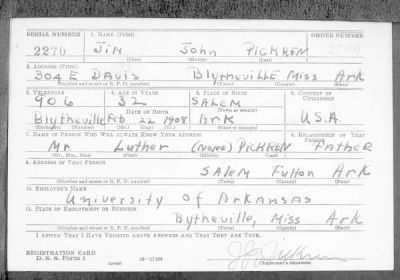 SERIAL NUMBER 1. NAME (Print) ORDER NUMBER
2270 Jim John Pickren
(First) (Middle) (Last)
2. ADDRESS (Print)
304 E Davis Blytheville Miss Ark
(Number and street or R. F. D. number) (Town) (County) (State)
3. TELEPHONE 4. AGE IN YEARS 5. PLACE OF BIRTH 6. COUNTRY OF CITIZENSHIP
906 32 Salem
DATE OF BIRTH (Town or county)
Blytheville Feb 22 1908 Ark U.S.A.
(Exchange) (Mo.) (Day) (Yr.) (State or country)
7. NAME OF PERSON WHO WILL ALWAYS KNOW YOUR ADDRESS 8. RELATIONSHIP OF THAT PERSON
Mr Luther (None) Pickren Father
(Mr., Mrs., Miss) (First) (Middle) (Last)
9. ADDRESS OF THAT PERSON
Salem Fulton Ark
(Number and street or R. F. D. number) (Town) (County) (State)
10. EMPLOYER'S NAME
University of Arkansas
11. PLACE OF EMPLOYMENT OR BUSINESS
Bytheville, Miss Ark
(Number and street or R. F. D. number) (Town) (County) (State)
I AFFIRM THAT I HAVE VERIFIED ABOVE ANSWERS AND THAT THEY ARE TRUE.
REGISTRATION CARD
D. S. S. Form 1 (over) (Registrant's signature)